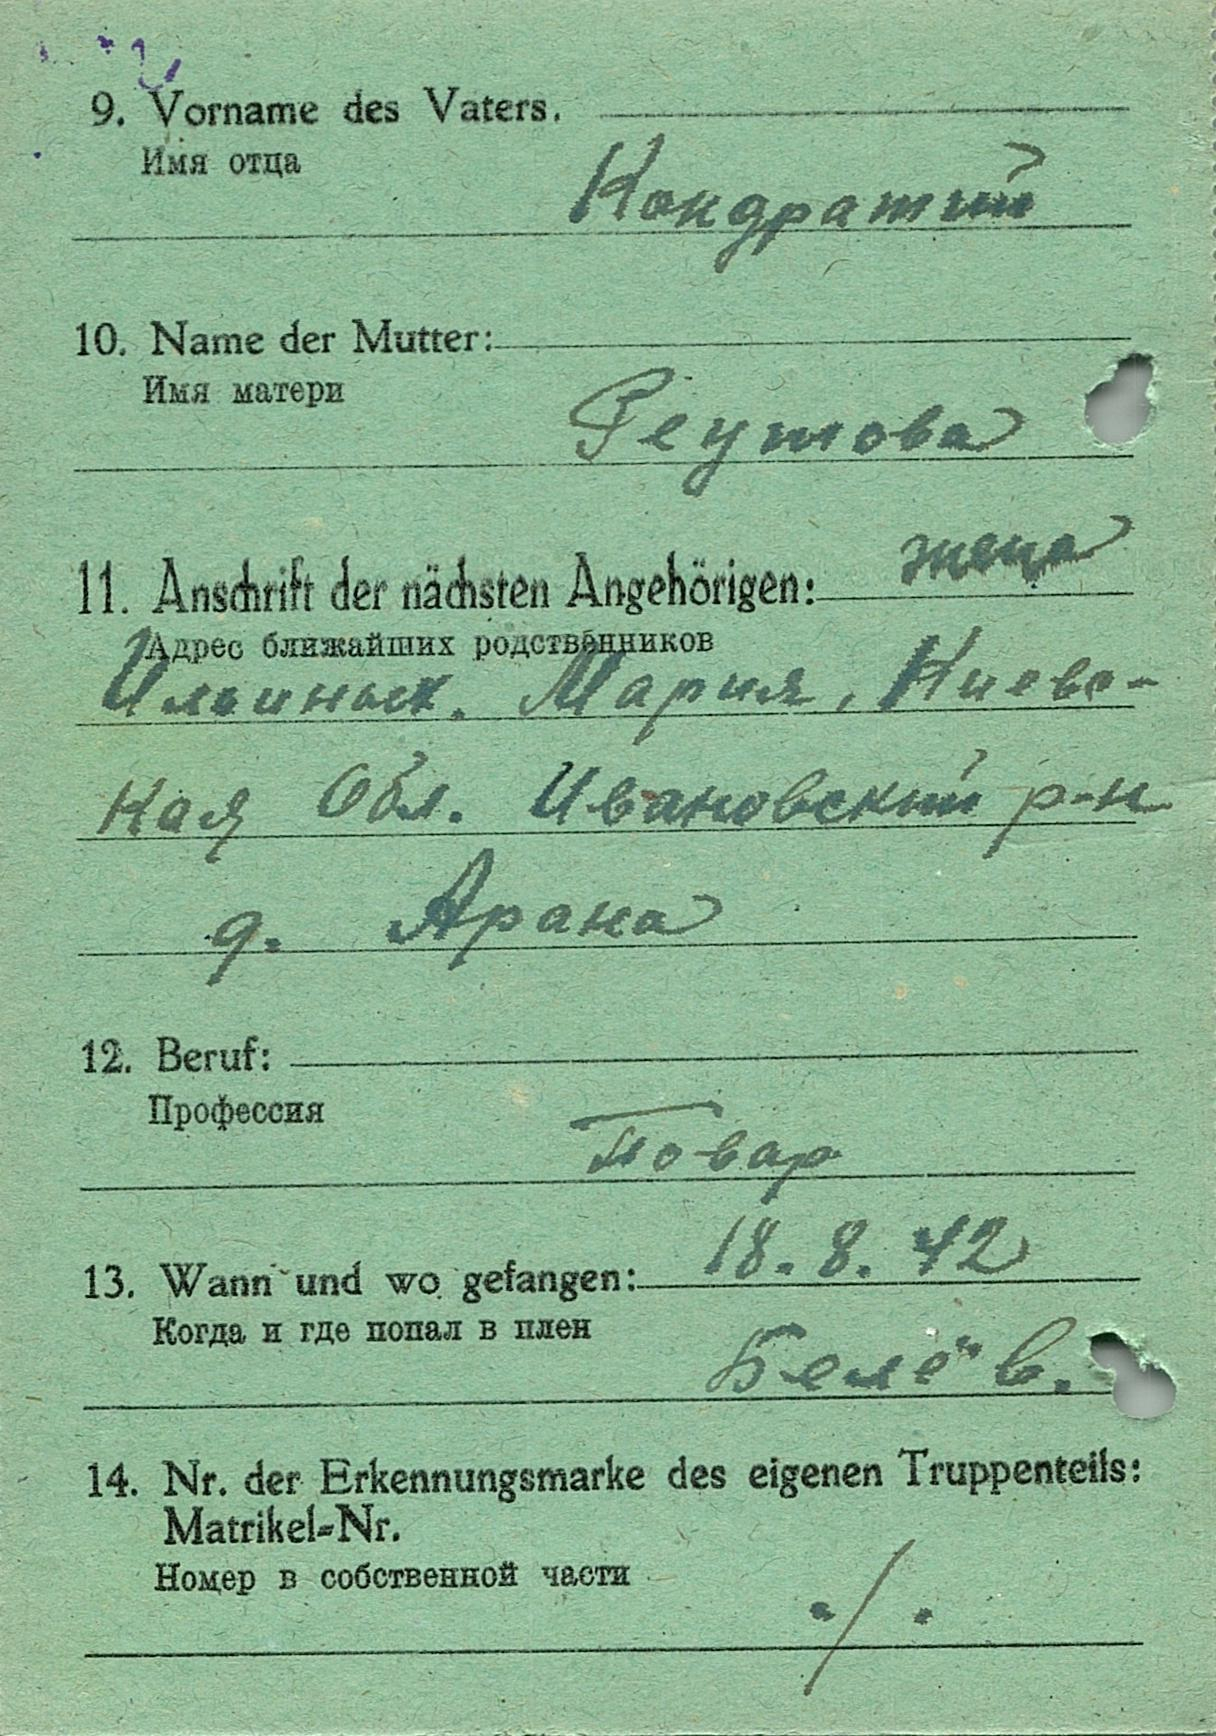 9. Vorname des Vaters.
Имя отца
Кондратий
10. Name der Mutter:
Имя матери
Реутова
жена
11. Anschrift der nächsten Angehörigen:
Адрес ближайших родственников
Ильиных. Мария, Киевс-
кая Обл. Ивановский р-н
д. Арана
12. Beruf:
Профессия
Повар
18.8.42
13. Wann und wo gefangen:
Когда и где попал в плен
Белёв.
14. Nr. der Erkennungsmarke des eigenen Truppenteils:
Matrikel-Nr.
Номер в собственной части
./.